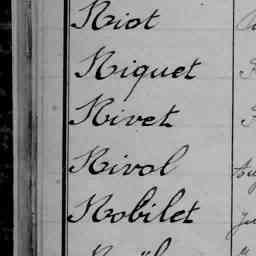 Niot
Niquet
Nivet
Nivol
Nobilet